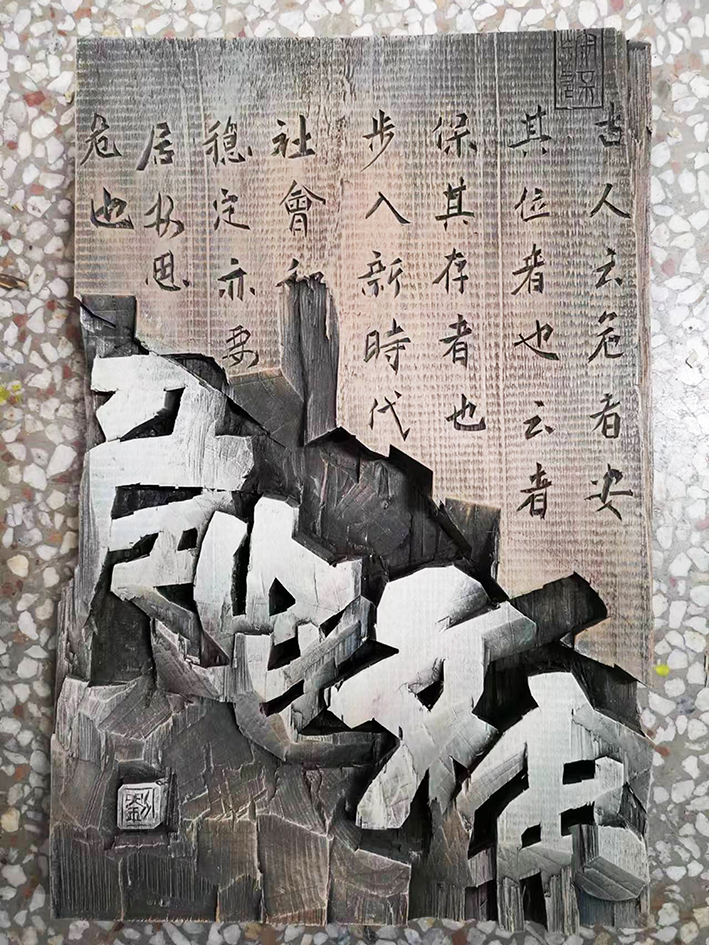 古人云危者安
其位者也云者
保其存者也
步入新時代
社會和
穩定亦要
居安思
危也